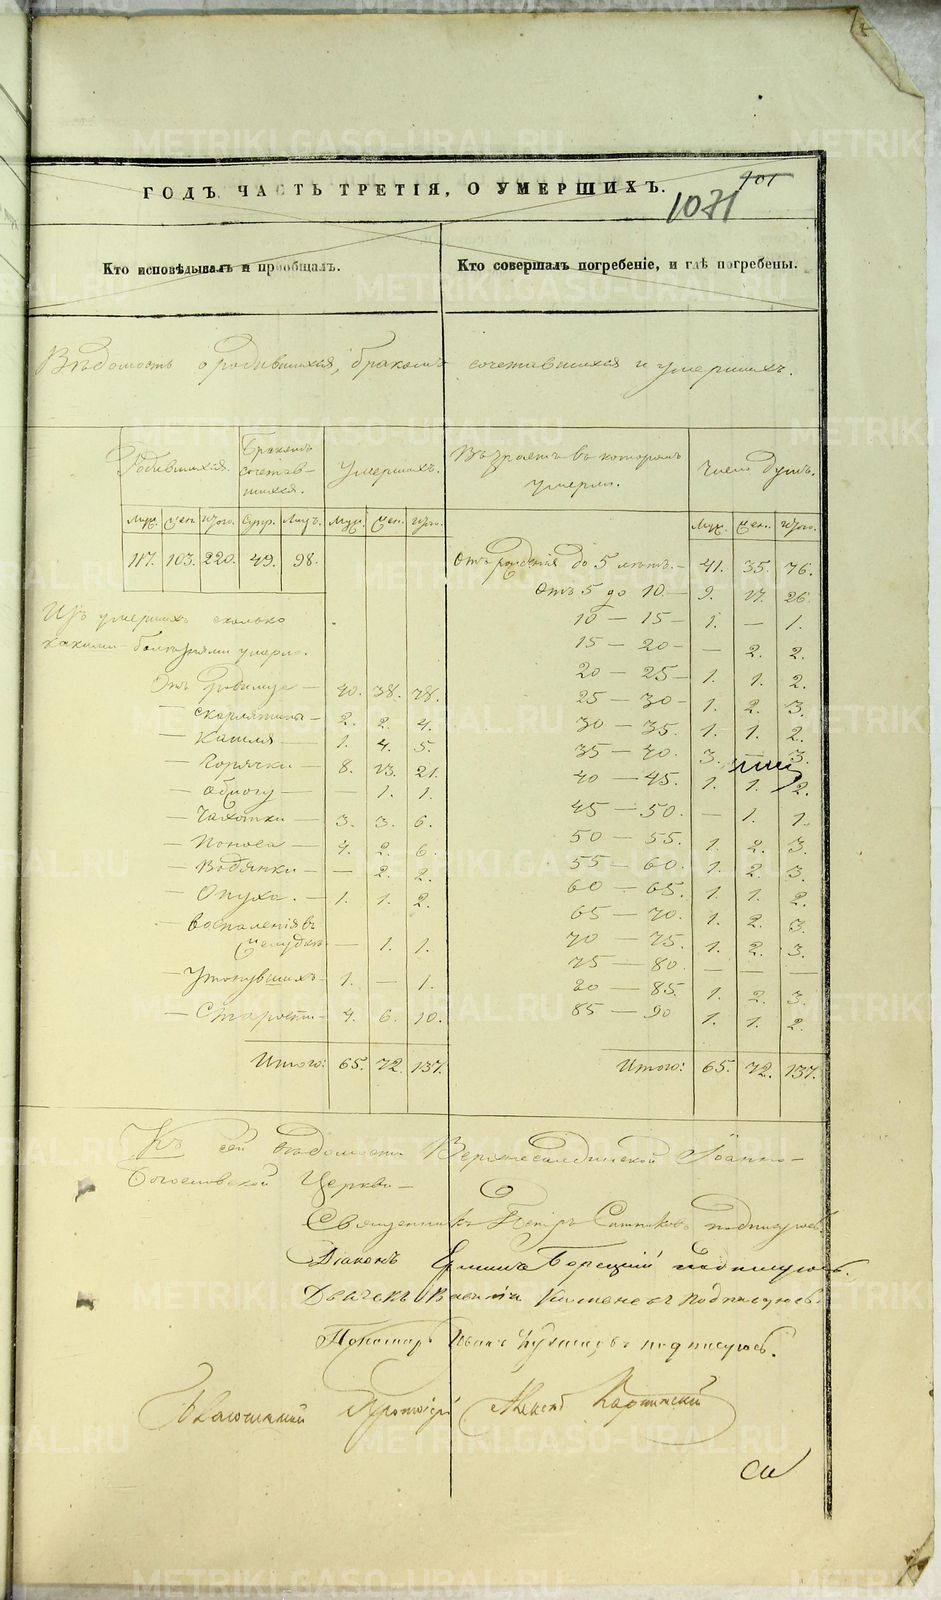 ГОДЪ. ЧАСТЬ ТРЕТІЯ, О УМЕРШИХЪ.
401
1071
Кто исповѣдывалъ и пріобщалъ.
Кто совершалъ погребеніе, и гдѣ погребены.
Вѣдомость о родившихся, бракомъ сочетавшихся и умершихъ.
Родившихся. Бракомъ сочетавшихся. Умершихъ.
Възрастъ въ которомъ умерли. Число душъ.
Муж. Жен. Итого. Супр. Лицъ. Муж. Жен. Итого.
Муж. Жен. Итого.
117. 103. 220. 49. 98.
Изъ умершихъ сколько
какими болѣзнями умерло.
От родимца — 40. 38. 78.
— Скарлатины — 2. 2. 4.
— Кашля — 1. 4. 5.
— Горячки — 8. 13. 21.
— — 1. 1.
— Чахотки — 3. 3. 6.
— Поноса — 4. 2. 6.
— Водянки — — 2. 2.
— Опуха. — 1. 1. 2.
— Воспаленія въ
желудкѣ — 1. 1.
— Утонувшихъ 1. — 1.
— Старости 4. 6. 10.
Итого: 65. 72. 137.
Отъ рожденія до 5 лѣтъ. — 41. 35. 76.
Отъ 5 до 10. — 9. 17. 26.
10 — 15 — 1. — 1.
15 — 20 — — 2. 2.
20 — 25 — 1. 1. 2.
25 — 30 — 1. 2. 3.
30 — 35. 1. 1. 2.
35 — 40. 3. — 3.
40 — 45. 1. 1. 2.
45 — 50. — 1. 1.
50 — 55. 1. 2. 3.
55 — 60. 1. 2. 3.
60 — 65. 1. 1. 2.
65 — 70. 1. 2. 3.
70 — 75. 1. 2. 3.
75 — 80. — — —
80 — 85. 1. 2. 3.
85 — 90 1. 1. 2.
Итого: 65. 72. 137.
Къ сей вѣдомости Верхнесалдинской Іоанно-
Богословской Церкви —
Священникъ Петръ Ситниковъ подписуюсь.
Діаконъ подписуюсь.
Дьячекъ Василій подписуюсь.
Пономарь Иванъ подписуюсь.
Благочинный Протоіерей Алексѣй
METRIKI.GASO-URAL.RU